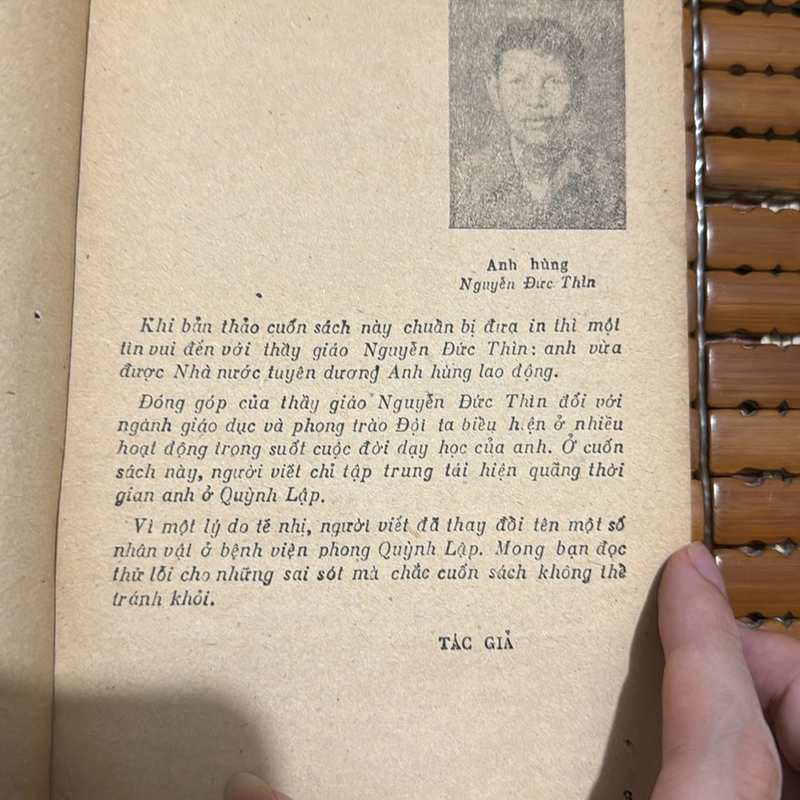 Anh hùng
Nguyễn Đức Thìn
Khi bản thảo cuốn sách này chuẩn bị đưa in thì một
tin vui đến với thầy giáo Nguyễn Đức Thìn: anh vừa
được Nhà nước tuyên dương Anh hùng lao động.
Đóng góp của thầy giáo Nguyễn Đức Thìn đối với
ngành giáo dục và phong trào Đội ta biểu hiện ở nhiều
hoạt động trong suốt cuộc đời dạy học của anh. Ở cuốn
sách này, người viết chỉ tập trung tái hiện quãng thời
gian anh ở Quỳnh Lập.
Vì một lý do tế nhị, người viết đã thay đổi tên một số
nhân vật ở bệnh viện phong Quỳnh Lập. Mong bạn đọc
thứ lỗi cho những sai sót mà chắc cuốn sách không thể
tránh khỏi.
TÁC GIẢ
3